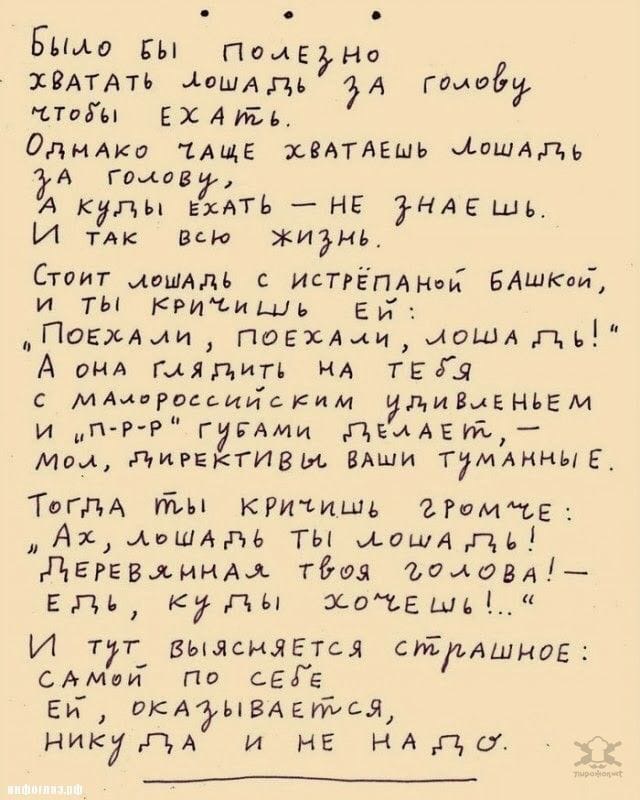 Было бы полезно
хватать лошадь за голову
чтобы ехать.
Однако чаще хватаешь лошадь
за голову,
а куды ехать — не знаешь.
И так всю жизнь.
Стоит лошадь с истрёпаной башкой,
и ты кричишь ей:
„Поехали, поехали, лошадь!“
А она глядить на тебя
с малороссийским удивленьем
и „п-р-р“ губами делает, —
мол, директивы ваши туманные.
Тогда ты кричишь громче:
„Ах, лошадь ты лошадь!
Деревянная твоя голова! —
Едь, куды хочешь!..“
И тут выясняется страшное:
самой по себе
ей, оказывается,
никуда и не надо.
инфоглаз.рф